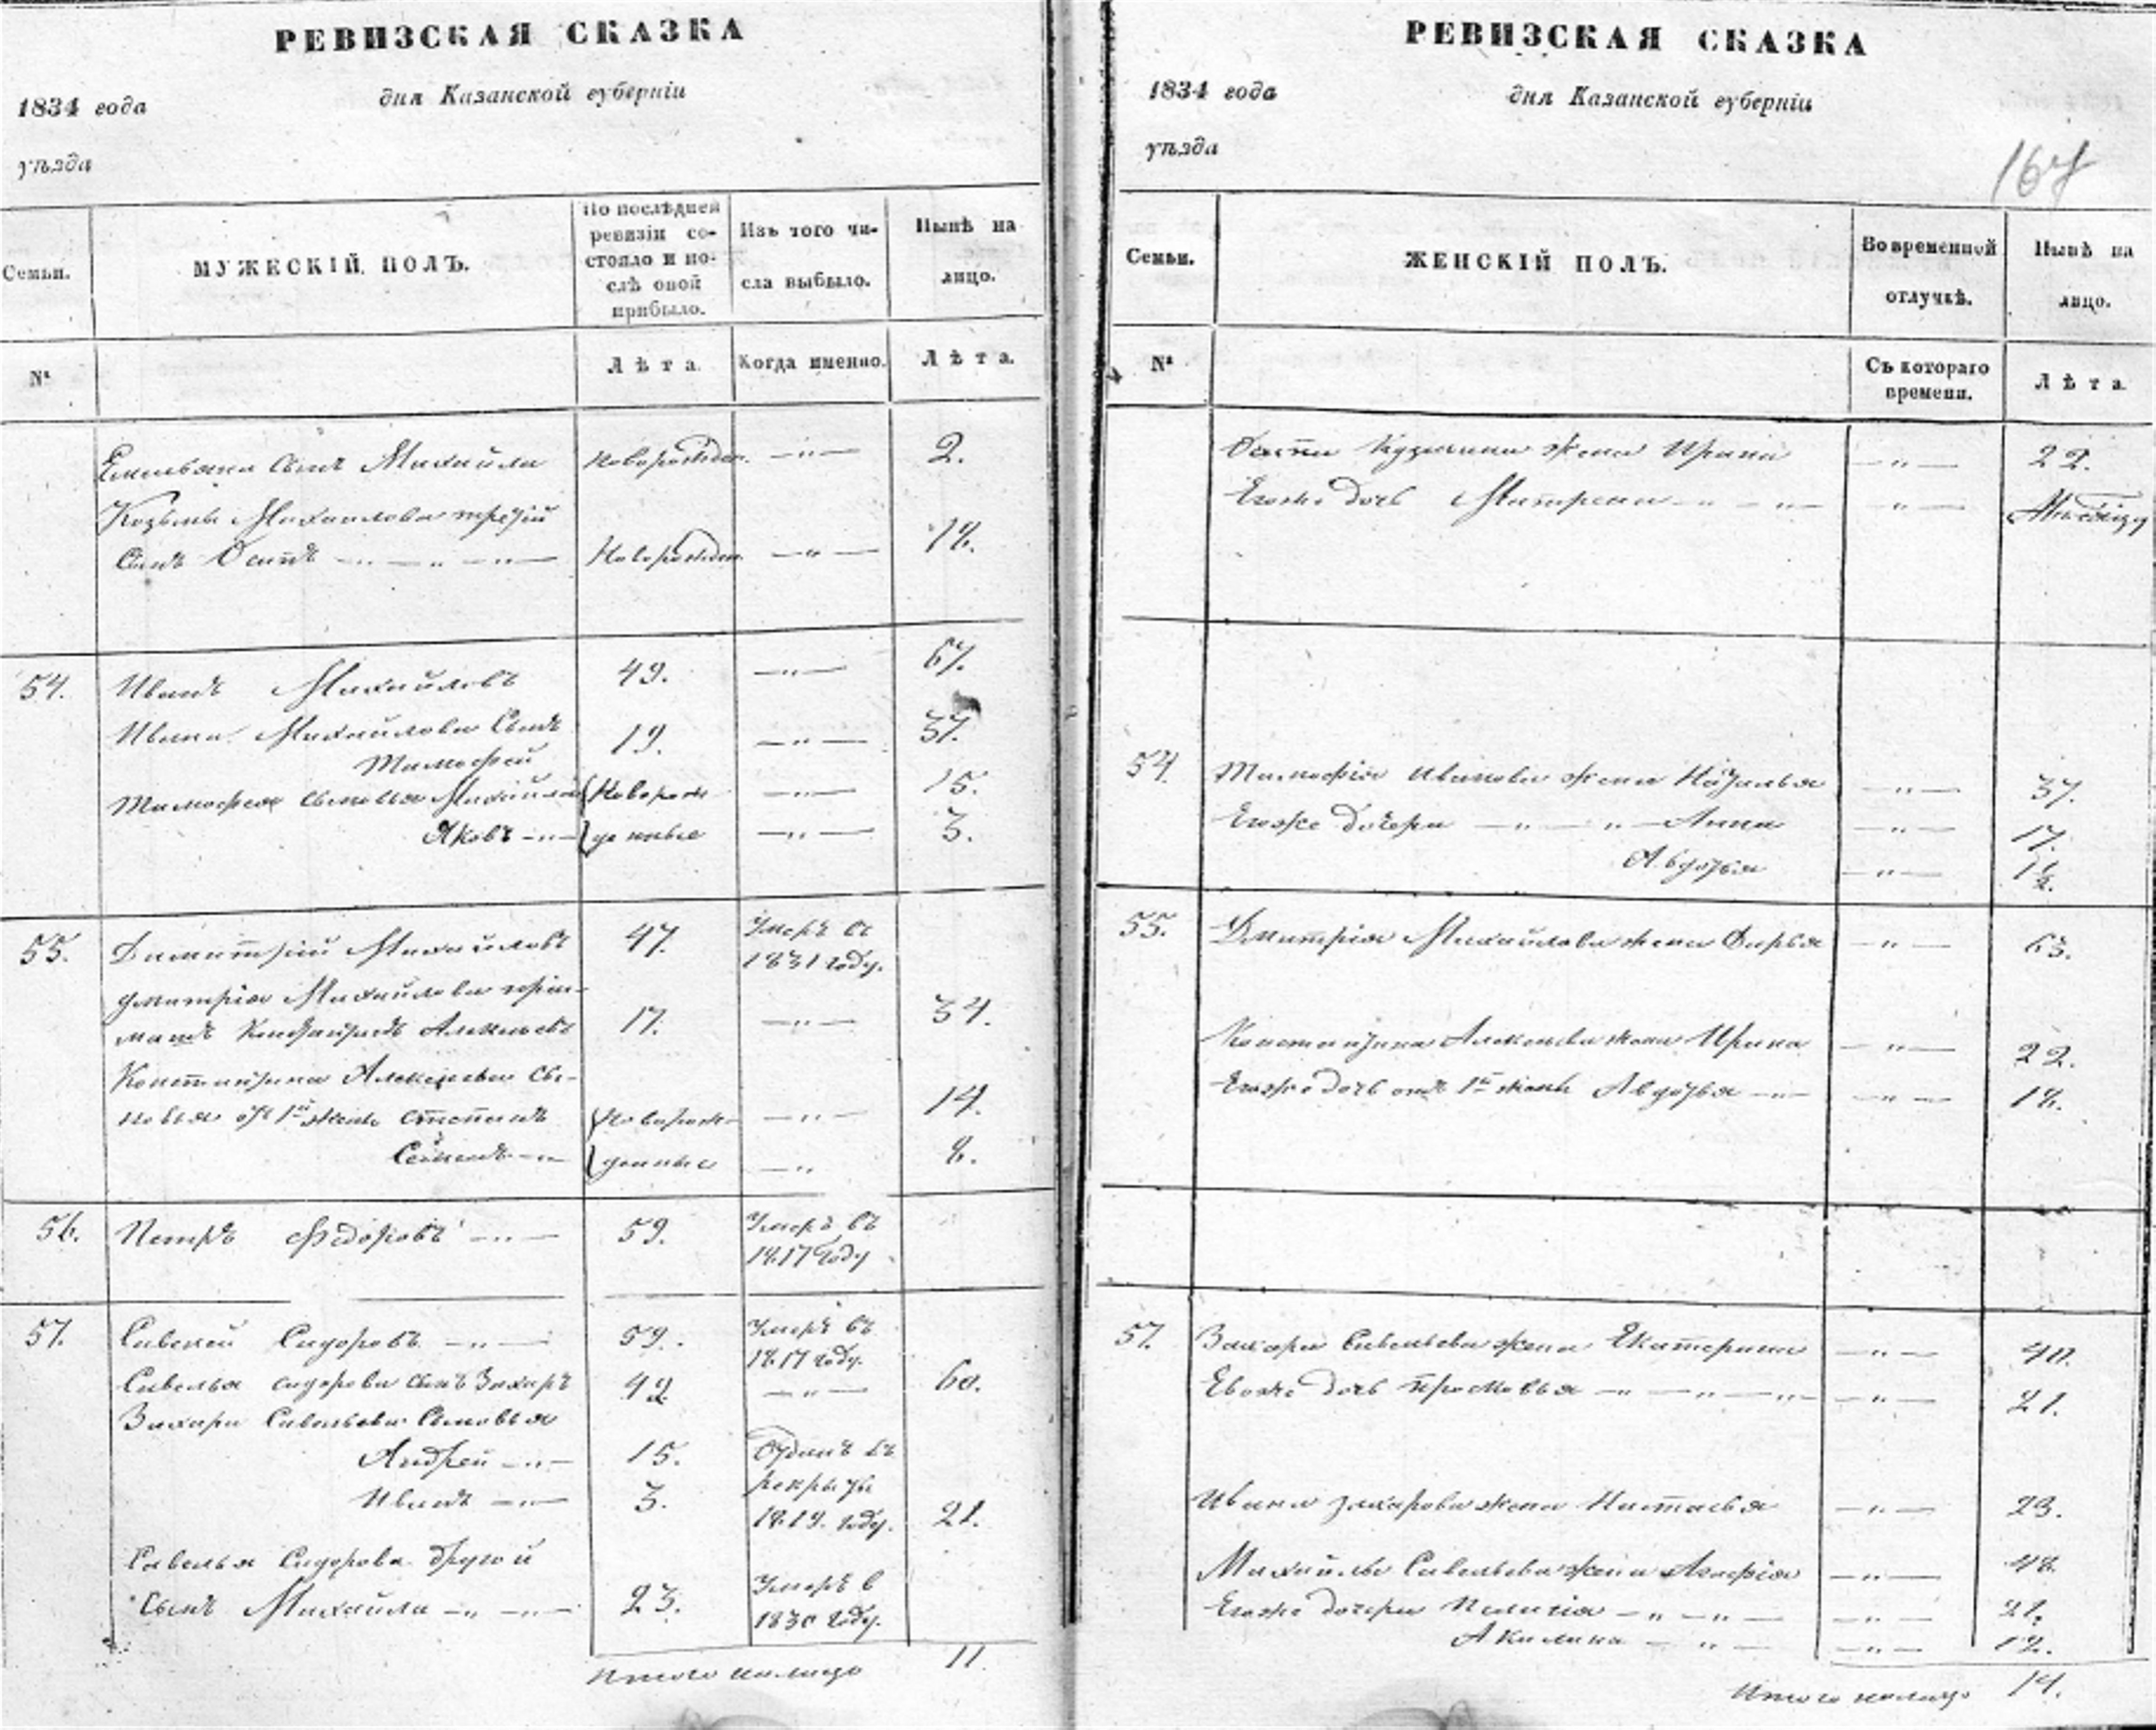 РЕВИЗСКАЯ СКАЗКА
1834 года
дня Казанской губерніи
уѣзда
Семьи.
МУЖЕСКІЙ ПОЛЪ.
По послѣдней
ревизіи со-
стояло и по-
слѣ оной
прибыло.
Изъ того чи-
сла выбыло.
Нынѣ на
лицо.
№
Лѣта.
Когда именно.
Лѣта.
Емельяна сынъ Михайла Новорожден. —„— 2.
Козьмы Михайлова третій
сынъ Осипъ —„—„—„— Новорожден. —„— 18.
54. Иванъ Михайловъ 49. —„— 67.
Ивана Михайлова сынъ 19. —„— 37.
Тимофей
Тимофея сыновья Михайла Новорож- —„— 15.
Яковъ —„— денные —„— 3.
55. Димитрій Михайловъ 47. Умеръ въ
1831 году.
Дмитрія Михайлова
Алексѣевъ 17. —„— 34.
Константина Алексѣева сы-
новья отъ 1й жены Степанъ Новорож- —„— 14.
Семенъ —„— денные —„ 8.
56. Петръ Федоровъ —„— 59. Умеръ въ
1817 году
57. Савелей Сидоровъ —„— 59. Умеръ въ
1817 году.
Савелья Сидорова сынъ Захаръ 42 —„— 60.
Захара Савельева сыновья
Андрей —„— 15. Отданъ въ
рекруты
Иванъ —„— 3. 1819. году. 21.
Савелья Сидорова другой
сынъ Михайла —„—„— 23. Умеръ в
1830 году.
Итого налицо 11.
РЕВИЗСКАЯ СКАЗКА
1834 года
дня Казанской губерніи
уѣзда
167
Семьи.
ЖЕНСКІЙ ПОЛЪ.
Во временной
отлучкѣ.
Нынѣ на
лицо.
№
Съ котораго
времени.
Лѣта.
Осипа Кузьмина жена Ирина —„— 22.
Егоже дочь Матрена —„—„— —„—
54. Тимофія Иванова жена Наталья —„— 37.
Егоже дочери —„—„— Анна —„— 17.
Авдотья —„—
55. Дмитрія Михайлова жена Дарья —„— 63.
Константина Алексѣева жена Ирина —„— 22.
Егоже дочь отъ 1й жены Авдотья —„— —„— 18.
57. Захара Савельева жена Екатерина —„— 40.
Евоже дочь Просковья —„—„—„— —„— 21.
Ивана Захарова жена Настасья —„— 23.
Михайлы Савельева жена Агафія —„— 48.
Егоже дочери Пелагія —„—„— —„— 21.
Акилина —„— —„— 12.
Итого налицо 14.